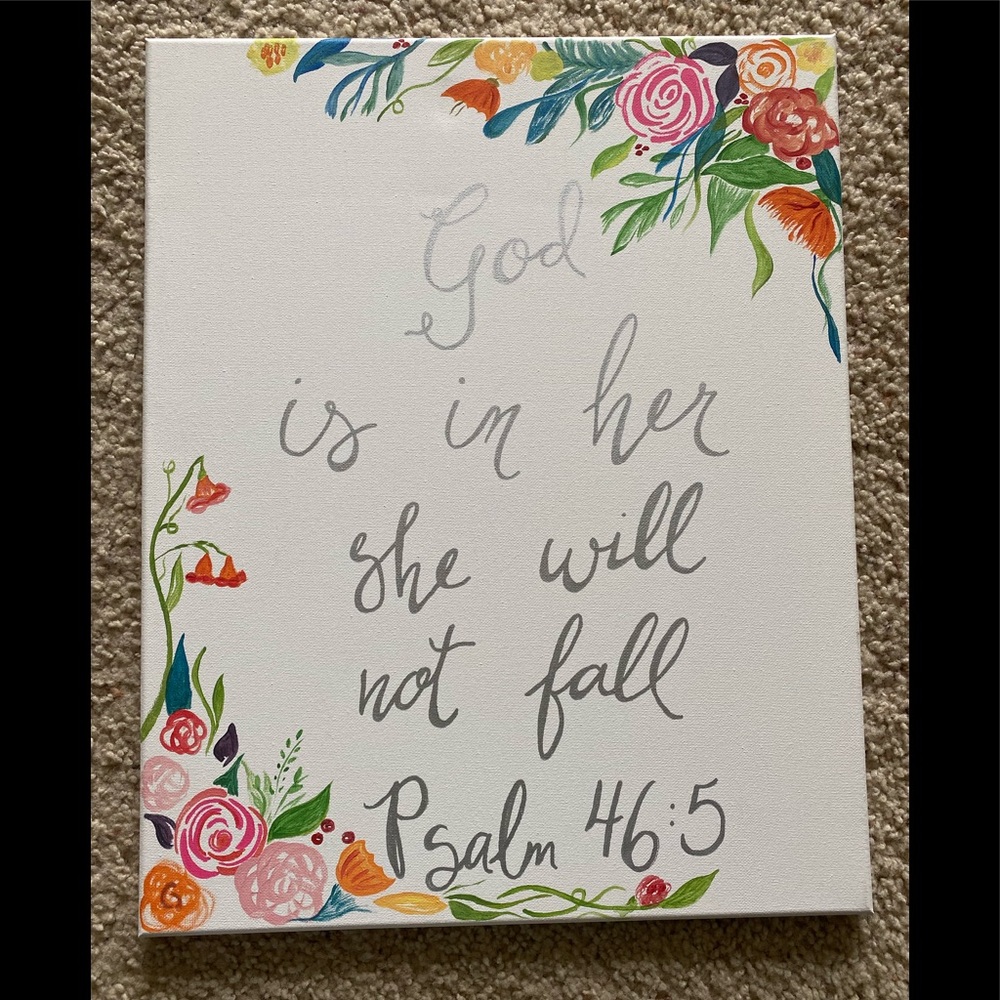 God
is in her
she will
not fall
Psalm 46:5
G